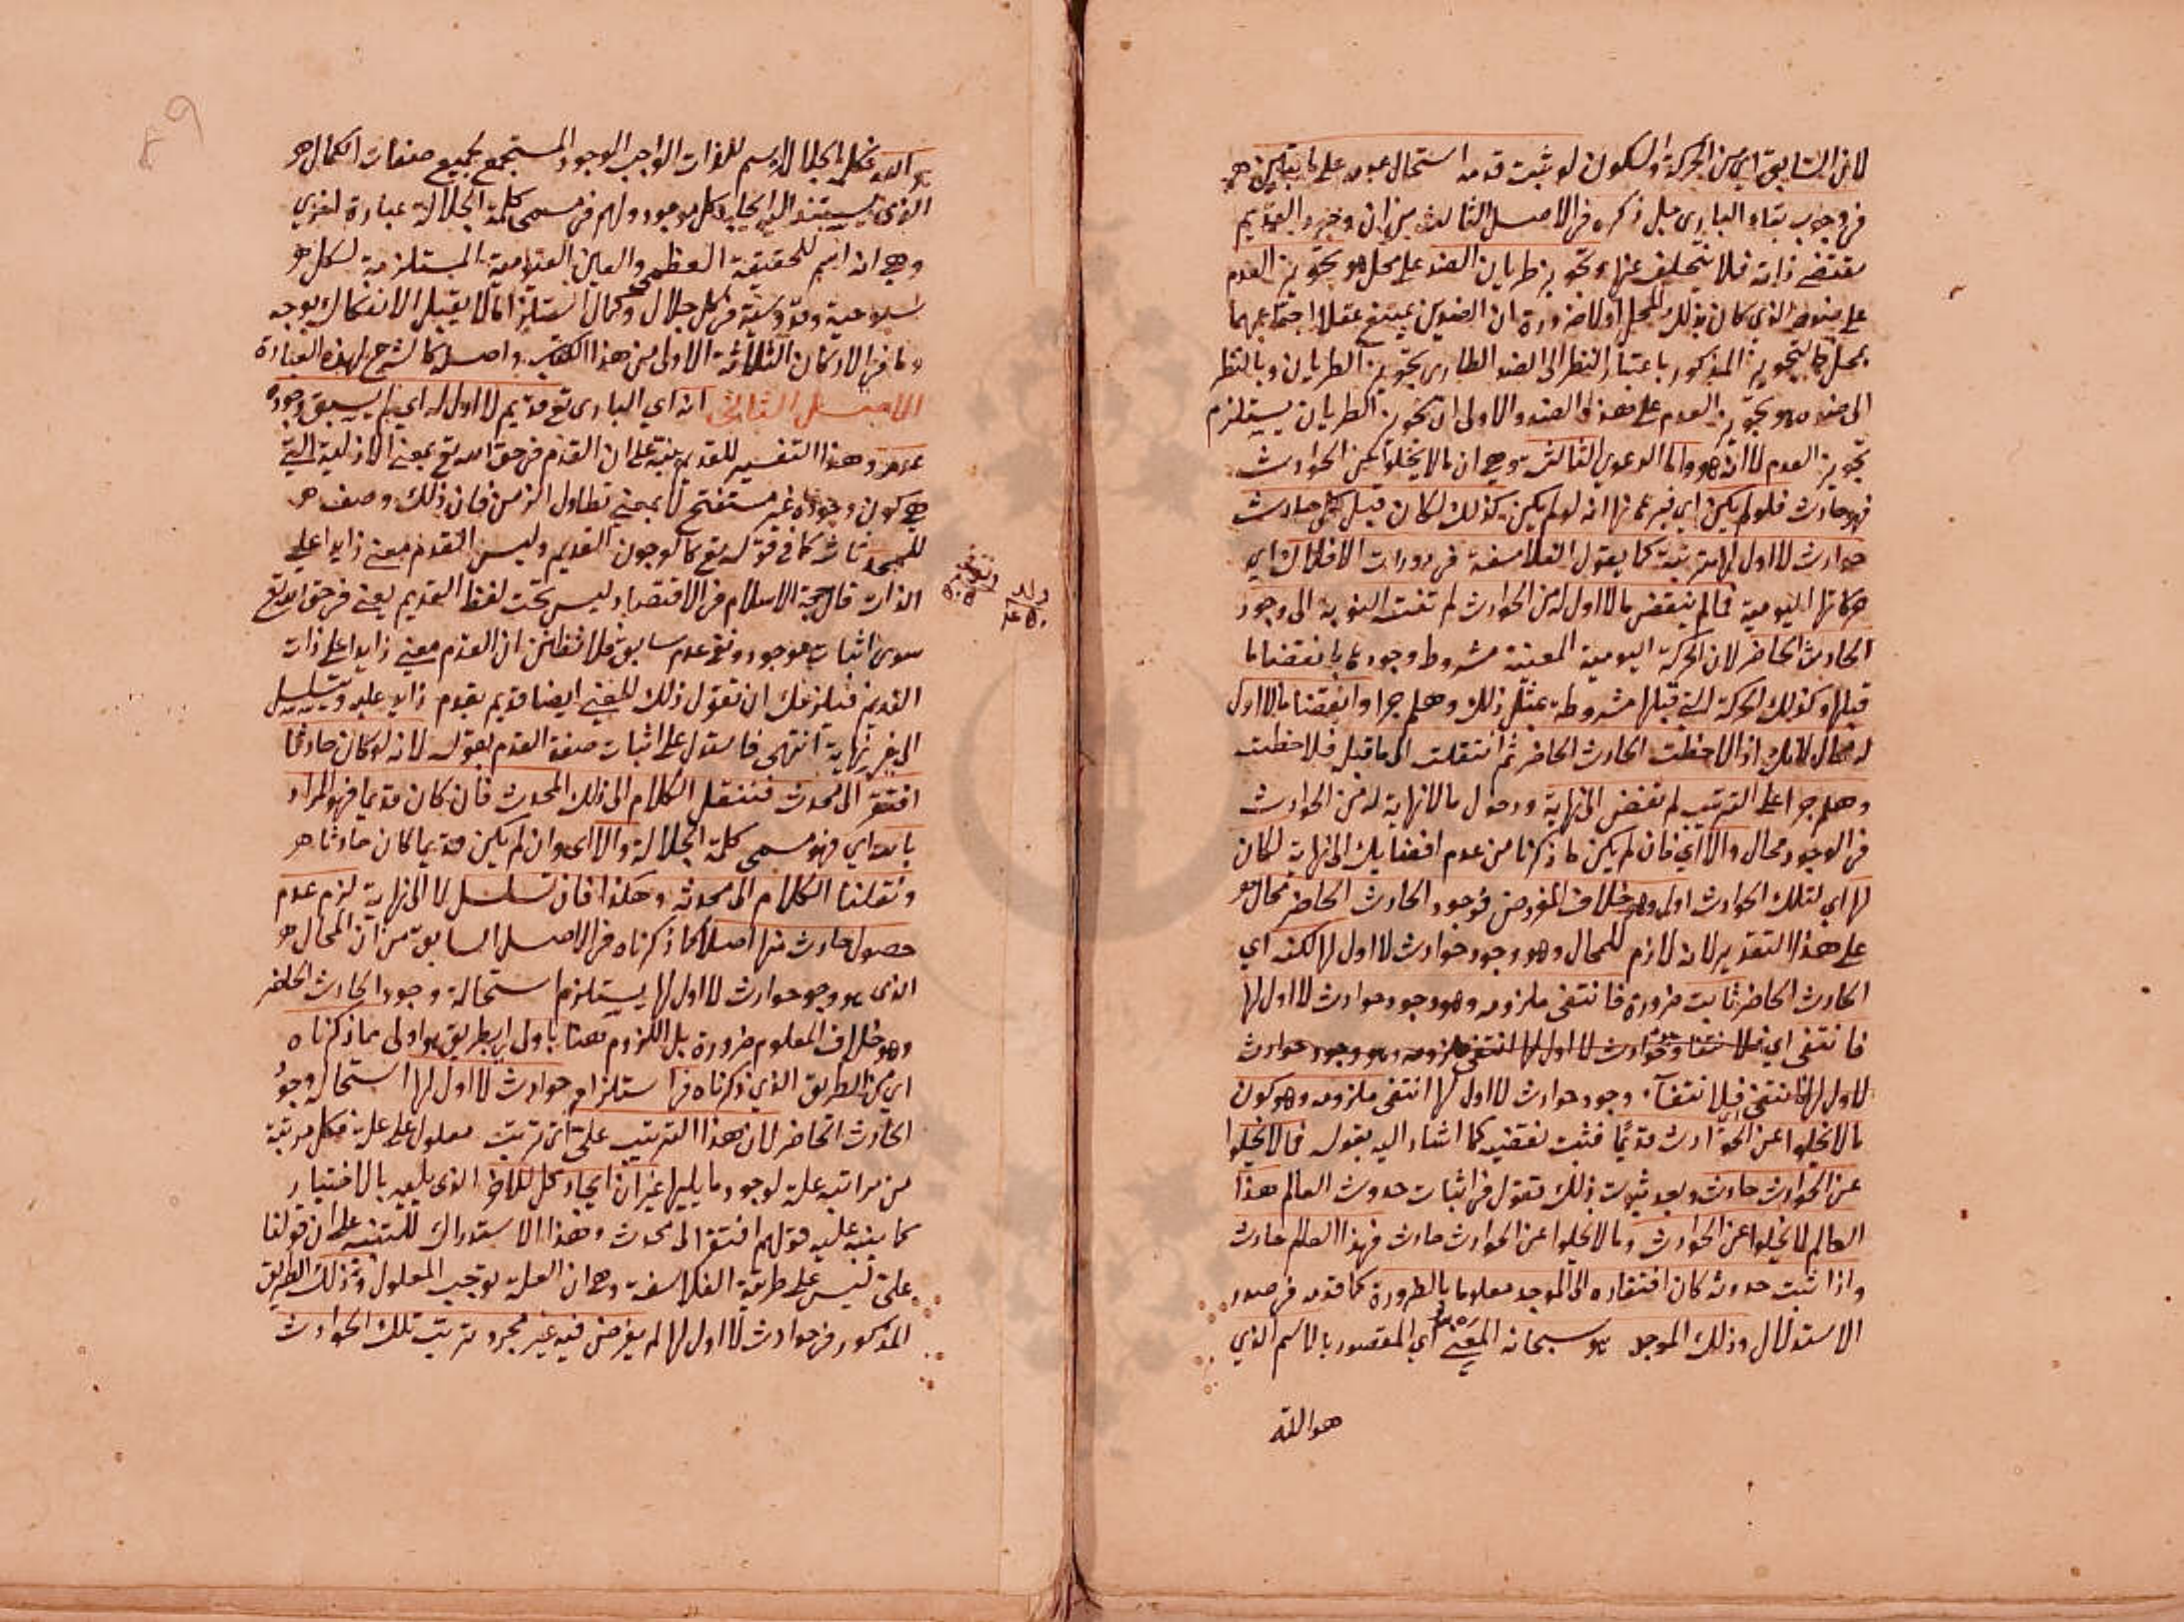 لان السابق اي من الحركة والسكون لو ثبت قدمه استحال عدمه على ما نبين
في وجوب بقاء الباري جل ذكره في الاصل الثالث من ان وجود القديم
مقتضى ذاته فلا يتخلف عنها وتجويز طريان الضد على محل هو تجويز العدم
على ضده الذي كان بذلك المحل اولا ضرورة ان الضدين يمتنع عقلا اجتماعهما
بمحل فالتجويز المذكور باعتبار النظر الى الضد الطاري تجويز الطريان وبالنظر
الى ضده هو تجويز العدم على هذا الضد والاولى ان تجويز الطريان يستلزم
تجويز العدم لا انه هو واما الدعوى الثالثة وهي ان ما لا يخلوا عن الحوادث
فهو حادث فلو لم يكن اي فبرهانها انه لو لم يكن كذلك لكان قبل كل حادث
حوادث لا اول لها مترتبة كما يقول الفلاسفة في دورات الافلاك اي
حركاتها اليومية فما لم ينقض ما لا اول له من الحوادث لم تنته النوبة الى وجود
الحادث الحاضر لان الحركة اليومية المعينة مشروط وجودها بانقضاء ما
قبلها وكذلك الحركة التي قبلها مشروطة بمثل ذلك وهلم جرا وانقضاء ما لا اول
له محال لانك اذا لاحظت الحادث الحاضر ثم انتقلت الى ما قبله فلاحظت
وهلم جرا على الترتيب لم تفض الى نهاية ودخول ما لا نهاية له من الحوادث
في الوجود محال والا اي فان لم يكن ما ذكرنا من عدم افضائك الى نهاية لكان
لها اي لتلك الحوادث اول وهو خلاف المفروض فوجود الحادث الحاضر محال
على هذا التقدير لانه لازم للمحال وهو وجود حوادث لا اول لها لكنه اي
الحادث الحاضر ثابت ضرورة فانتفى ملزومه وهو وجود حوادث لا اول لها
فانتفى اي فلانتفاء حوادث لا اول لها انتفى ملزومه وهو وجود حوادث
لا اول لها انتفى فلانتفاء وجود حوادث لا اول لها انتفى ملزومه وهو كون
ما لا يخلوا عن الحوادث قديما فثبت نقيضه كما اشار اليه بقوله فما لا يخلوا
عن الحوادث حادث وبعد ثبوت ذلك نقول في اثبات حدوث العالم هذا
العالم لا يخلوا عن الحوادث وما لا يخلوا عن الحوادث حادث فهذا العالم حادث
واذا ثبت حدوثه كان افتقاره الى الموجد معلوما بالضرورة كما قدمه في صدر
الاستدلال وذلك الموجد هو سبحانه المعني اي المقصود بالاسم الذي
هو الله
هو الله فكلمة الجلالة اسم للذات الواجب الوجود المستجمع لجميع صفات الكمال
الذي يستند اليه ايجاد كل موجود ولهم في مسمى كلمة الجلالة عبارة اخرى
وهي انه اسم للحقيقة العظمى والعين القيومية المستلزمة لكل
سبوحية وقدوسية في كل جلال وكمال استلزاما لا يقبل الانفكاك بوجه
وما في الاركان الثلاثة الاولى من هذا الكتاب واصله كالشرح لهذه العبارة
الاصل الثاني انه اي الباري تع قديم لا اول له اي لم يسبق وجوده
عدم وهذا التفسير للقديم ينبه على ان القدم في حق الله تع بمعنى الازلية التي
هي كون وجوده غير مستفتح لا بمعنى تطاول الزمن فان ذلك وصف
للمحدثات كما في قوله تع كالعرجون القديم وليس القدم معنى زايدا على
الذات قال حجة الاسلام في الاقتصاد ليس تحت لفظ القديم يعني في حق الله تع
سوى اثبات موجود ونفي عدم سابق فلا تظنن ان القدم معنى زايد على ذات
القديم فيلزمك ان تقول ذلك المعنى ايضا قديم بقدم زايد عليه ويتسلسل
الى غير نهاية انتهى فاستدل على اثبات صفة القدم بقوله لانه لو كان حادثا
افتقر الى محدث فننتقل الكلام الى ذلك المحدث فان كان قديما فهو المراد
بالله اي فهو مسمى كلمة الجلالة والا اي وان لم يكن قديما كان حادثا
ونقلنا الكلام الى محدثه وهكذا فان تسلسل لا الى نهاية لزم عدم
حصول حادث منها اصلا كما ذكرناه في الاصل السابق من ان المحال
الذي هو وجود حوادث لا اول لها يستلزم استحالة وجود الحادث الحاضر
وهو خلاف المعلوم ضرورة بل اللزوم هنا باولى اي بطريق هو اولى مما ذكرناه
اي من الطريق الذي ذكرناه في استلزام حوادث لا اول لها استحالة وجود
الحادث الحاضر لان هذا الترتيب على اي ترتيب معلول على علة فكل مرتبة
من مراتبه علة لوجود ما يليها غير ان ايجاد كل للاخر الذي يليه بالاختيار
كما ينبه عليه قولهم افتقر الى محدث وهذا الاستدراك للتنبيه على ان قولنا
علة ليس على طريقة الفلاسفة وهي ان العلة توجب المعلول وذلك الطريق
المذكور في حوادث لا اول لها لم يفرض فيه غير مجرد ترتيب تلك الحوادث